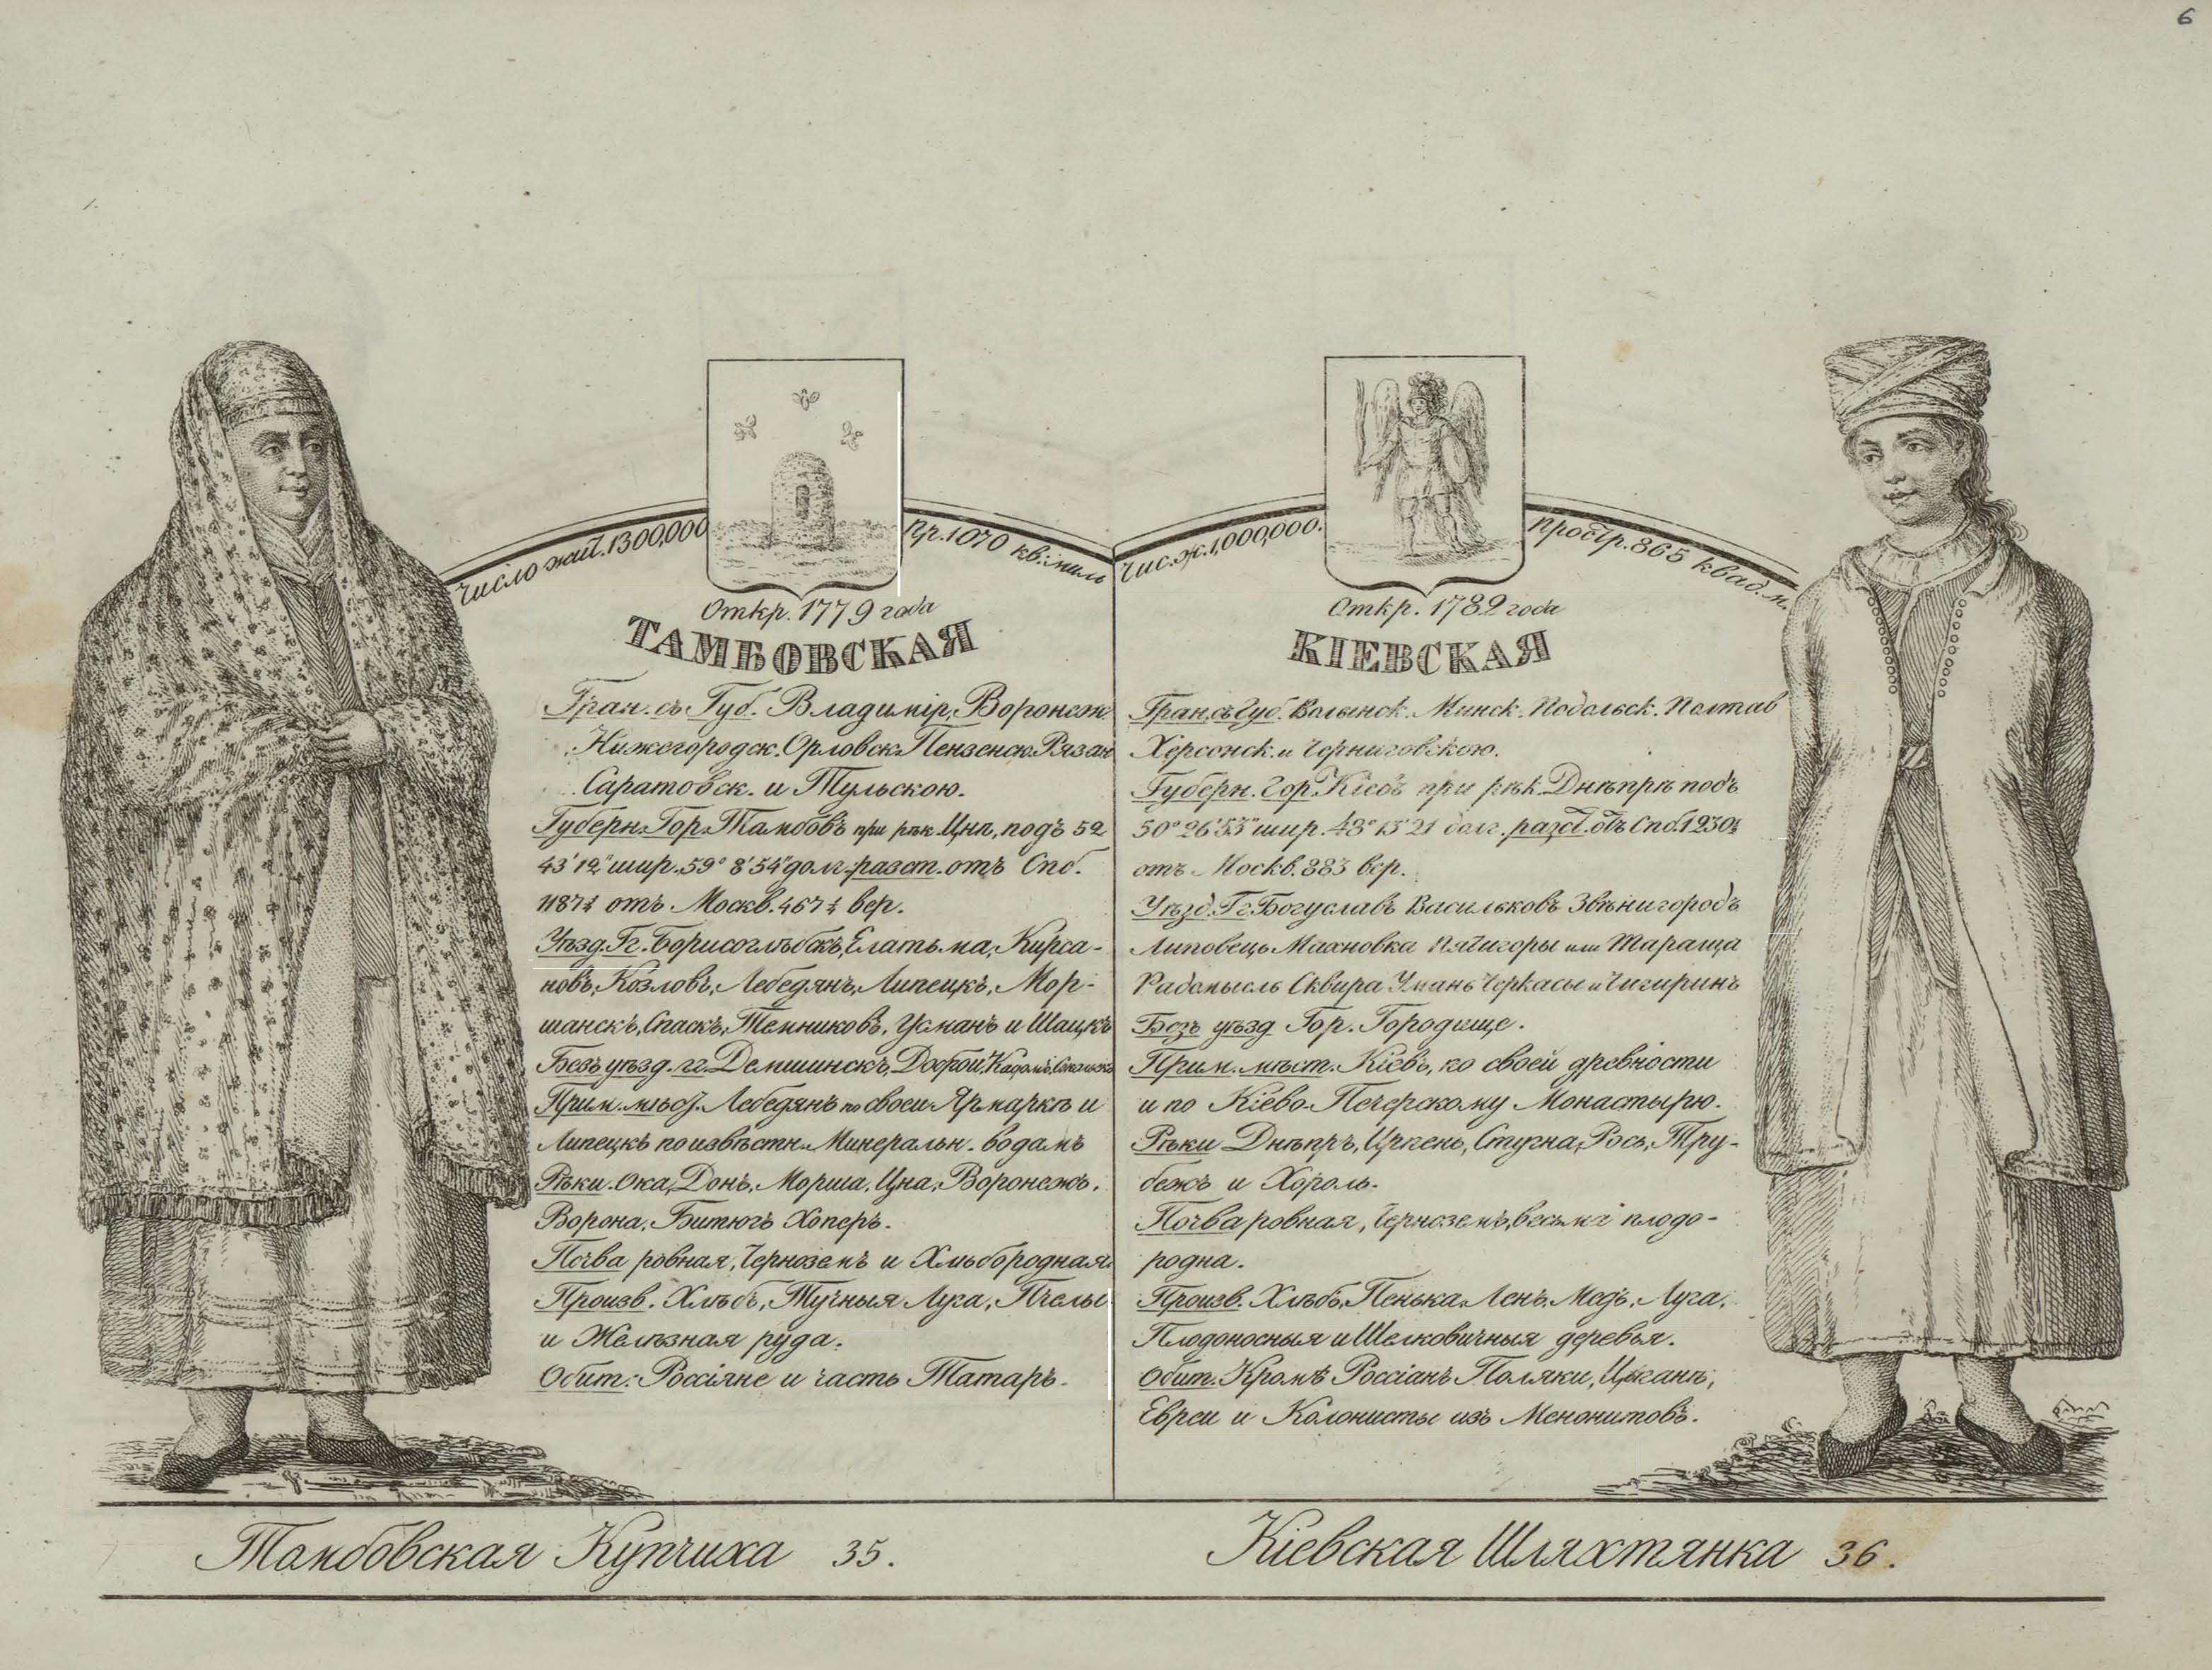 6
Число жит. 1300,000
Пр. 1070 кв: миль
Откр. 1779 года
ТАМБОВСКАЯ
Гран. съ Губ. Владимір, Воронеж
Нижегородск. Орловск. Пензенск. Рязан
Саратовск. и Тульскою.
Губерн. Гор. Тамбовъ при рѣк. Цнѣ, подъ 52
43' 12" шир. 59° 8' 54" долг. разст. отъ Спб.
1187½ отъ Москв. 467½ вер.
Уѣзд. Гг. Борисоглѣбскъ, Елатьма, Кирса-
новъ, Козловъ, Лебедянь, Липецкъ, Мор-
шанскъ, Спаскъ, Темниковъ, Усмань и Шацкъ
Безъ уѣзд. гг. Демшинскъ, Доброй, Кадомъ,
Прим. мѣст. Лебедянь по своей Ярмаркѣ и
Липецкъ по извѣстн. Минеральн. водамъ
Рѣки. Ока, Донъ, Морша, Цна, Воронежъ,
Ворона, Битюгъ Хоперъ.
Почва ровная, Черноземъ и Хлѣбородная.
Произв. Хлѣбъ, Тучныя Луга, Пчелы
и Желѣзная руда.
Обит: Россіяне и часть Татаръ.
Чис. ж. 1,000,000.
простр. 865 квад. м.
Откр. 1782 года
КІЕВСКАЯ
Гран. съ Губ. Волынск. Минск. Подольск. Полтав
Херсонск. и Черниговскою.
Губерн. Гор. Кіевъ при рѣк. Днѣпрѣ подъ
50° 26' 53" шир. 48° 13' 21 долг. разст. отъ Спб. 1230½
отъ Москв. 883 вер.
Уѣзд. Гг. Богуславъ Васильковъ Звѣнигородъ
Липовецъ Махновка Пятигоры или Тараща
Радомысль Сквира Умань Черкасы и Чигиринъ
Безъ уѣзд Гор. Городище.
Прим. мѣст. Кіевъ, ко своей древности
и по Кіево-Печерскому Монастырю.
Рѣки Днѣпръ, Ирпень, Стугна, Рось, Тру-
бежъ и Хороль.
Почва ровная, Черноземъ, весьма плодо-
родна.
Произв. Хлѣбъ, Пенька, Ленъ, Медъ, Луга,
Плодоносныя и Шелковичныя деревья.
Обит. Кромѣ Россіанъ Поляки, Цыганѣ,
Евреи и Колонисты изъ Менонитовъ.
Тамбовская Купчиха 35.
Кіевская Шляхтянка 36.